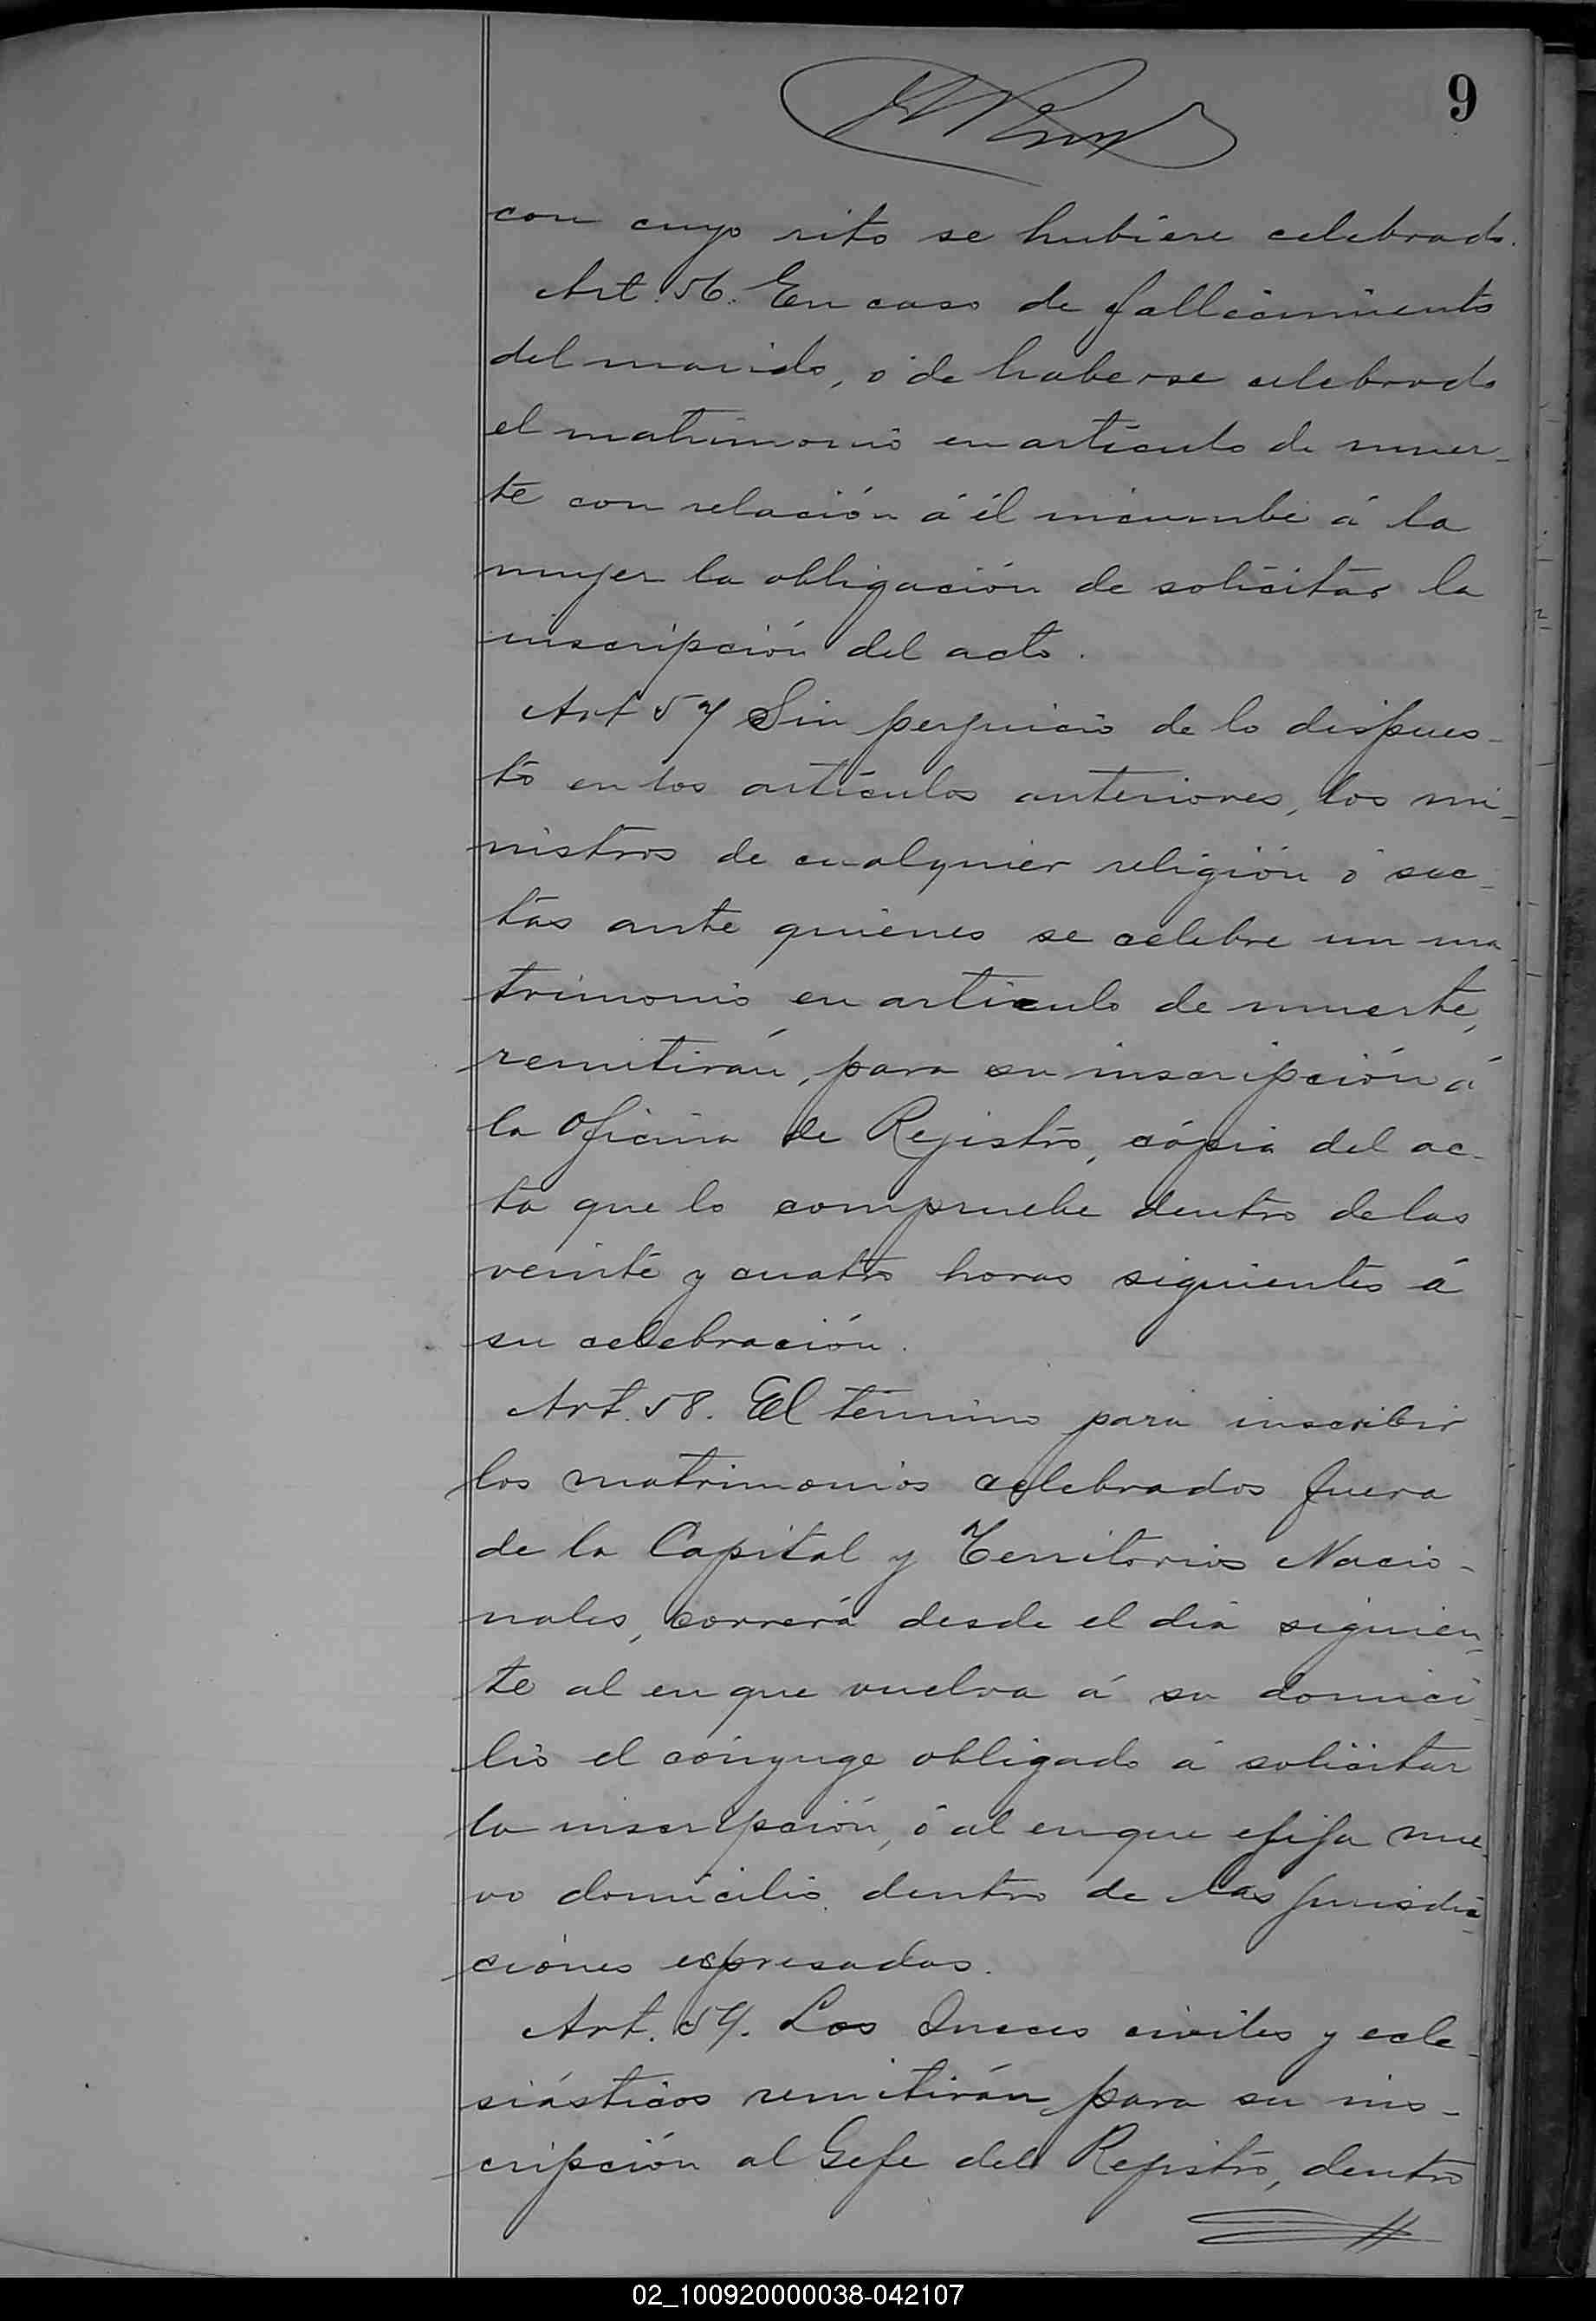 9
con cuyo rito se hubiere celebrado.
Art. 56. En caso de fallecimiento
del marido, ó de haberse celebrado
el matrimonio en artículo de muer-
te con relación á él incumbe á la
mujer la obligación de solicitar la
inscripción del acto.
Art 57 Sin perjuicio de lo dispues-
to en los artículos anteriores, los mi-
nistros de cualquier religión ó sec-
tas ante quienes se celebre un ma
trimonio en articulo de muerte,
remitirán, para su inscripción á
la Oficina de Rejistro, cópia del ac-
ta que lo compruebe dentro de las
veinte y cuatro horas siguientes á
su celebración.
Art. 58. El término para inscribir
los matrimonios celebrados fuera
de la Capital y Territorios Nacio-
nales, correrá desde el dia siguien-
te al en que vuelva á su domici-
lio el cónyuge obligado á solicitar
la inscripción, ó al en que elija nue-
vo domicilio dentro de las jurisdic-
ciones espresadas.
Art. 59. Los Jueces civiles y ecle-
siásticos remitirán para su ins-
cripción al Gefe del Rejistro, dentro
02_100920000038-042107